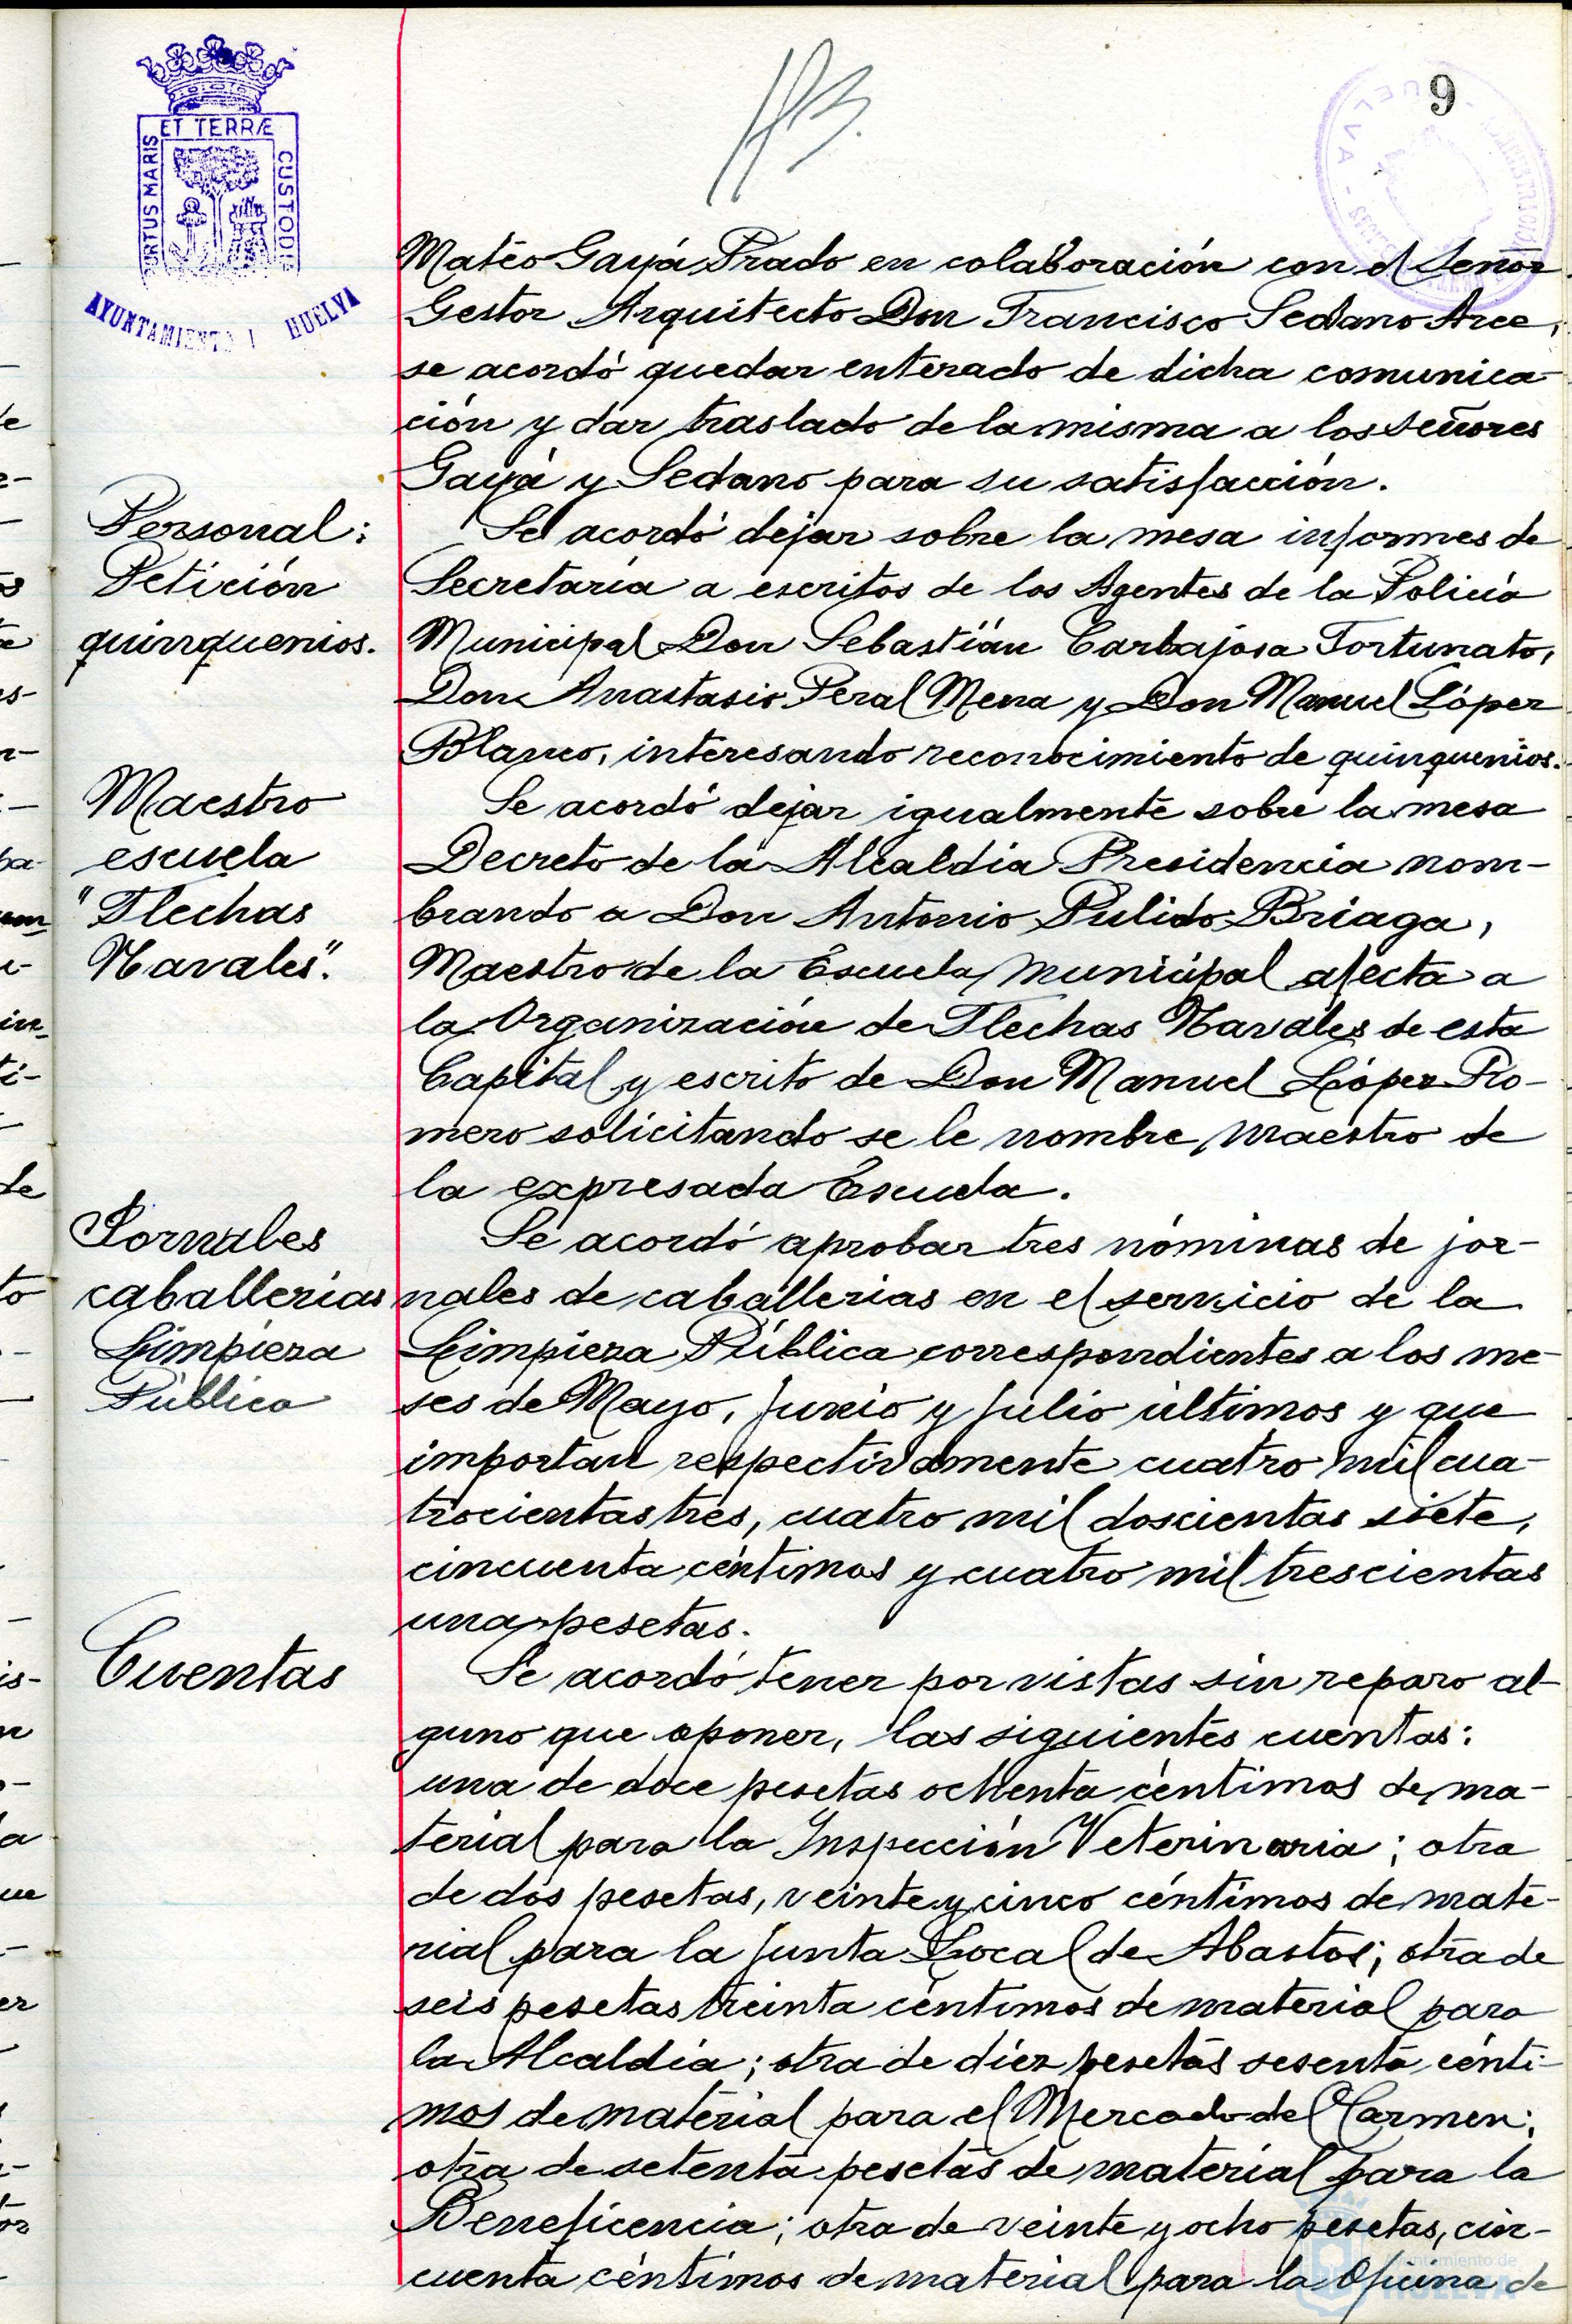 9
ET TERRÆ
PORTUS MARIS
CUSTODIA
AYUNTAMIENTO HUELVA
Mateo Gayá Prado en colaboración con el Señor
Gestor Arquitecto Don Francisco Sedano Arce,
se acordó quedar enterado de dicha comunica-
ción y dar traslado de la misma a los señores
Gayá y Sedano para su satisfacción.
Personal:
Petición
quinquenios.
Se acordó dejar sobre la mesa informes de
Secretaría a escritos de los Agentes de la Policía
Municipal Don Sebastián Carbajosa Fortunato,
Don Anastasio Peral Mena y Don Manuel López
Blanco, interesando reconocimiento de quinquenios.
Maestro
escuela
"Flechas
Navales".
Se acordó dejar igualmente sobre la mesa
Decreto de la Alcaldía Presidencia nom-
brando a Don Antonio Pulido Briaga,
Maestro de la Escuela Municipal afecta a
la Organización de Flechas Navales de esta
Capital y escrito de Don Manuel López Ro-
mero solicitando se le nombre Maestro de
la expresada Escuela.
Jornales
caballerias
Limpieza
Pública
Se acordó aprobar tres nóminas de jor-
nales de caballerias en el servicio de la
Limpieza Pública correspondientes a los me-
ses de Mayo, Junio y Julio últimos y que
importan respectivamente cuatro mil cua-
trocientas tres, cuatro mil doscientas siete,
cincuenta céntimos y cuatro mil trescientas
una pesetas.
Cuentas
Se acordó tener por vistas sin reparo al-
guno que oponer, las siguientes cuentas:
una de doce pesetas ochenta céntimos de ma-
terial para la Inspección Veterinaria; otra
de dos pesetas, veinte y cinco céntimos de mate-
rial para la Junta Local de Abastos; otra de
seis pesetas treinta céntimos de material para
la Alcaldía; otra de diez pesetas sesenta cénti-
mos de material para el Mercado del Carmen;
otra de setenta pesetas de material para la
Beneficencia; otra de veinte y ocho pesetas, cin-
cuenta céntimos de material para la Oficina de
Ayuntamiento de
HUELVA